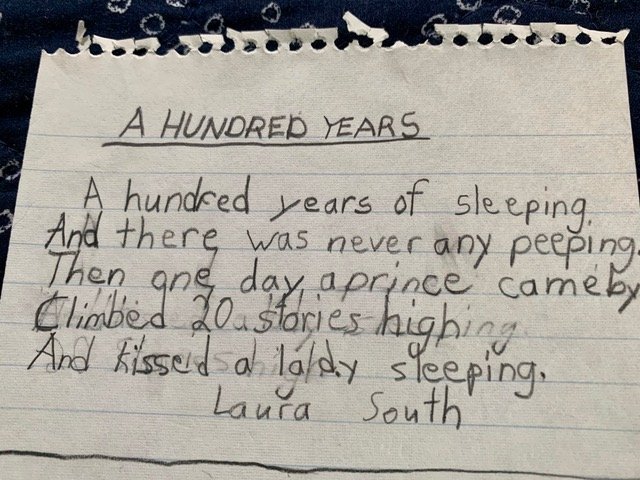 A HUNDRED YEARS
A hundred years of sleeping.
And there was never any peeping.
Then one day a prince came by
Climbed 20 stories high
And kissed a lady sleeping.
Laura South